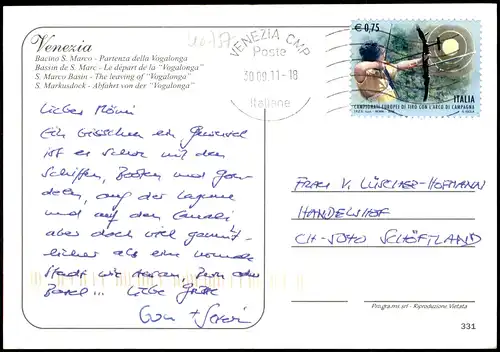 40-157
Venezia
Bacino S. Marco - Partenza della Vogalonga
Bassin de S. Marc - Le départ de la "Vogalonga"
S. Marco Basin - The leaving of "Vogalonga"
S. Markusdock - Abfahrt von der "Vogalonga"
VENEZIA CMP
Poste
30.09.11-18
Italiane
€ 0,75
ITALIA
CAMPIONATI EUROPEI DI TIRO CON L'ARCO DI CAMPAGNA
Lieber
Ein bisschen ein
ist es schon mit den
Schiffen, Booten und Gon-
deln, auf der Lagune
und auf den Canali
aber doch viel gemüt-
licher als eine normale
Stadt wie Aarau, Bern oder
Basel... Liebe Grüsse
FRAU V. LÜSCHER-HOFMANN
HANDELSHOF
CH-5040 SCHÖFTLAND
Programs srl - Riproduzione Vietata
331